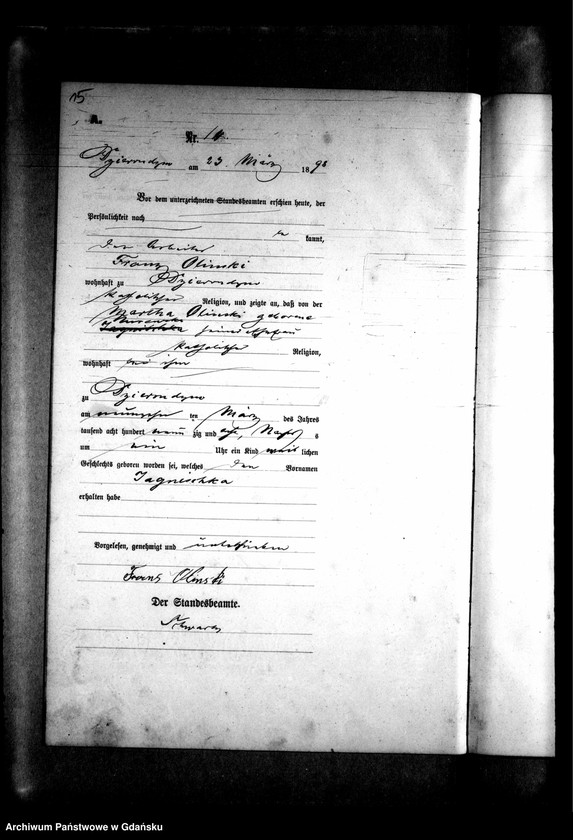 15
A.
Nr. 14.
Dzierondzno am 23. März 1898
Vor dem unterzeichneten Standesbeamten erschien heute, der
Persönlichkeit nach
be kannt,
der Arbeiter
Franz Olinski
wohnhaft zu Dzierondzno
katholischer Religion, und zeigte an, daß von der
Martha Olinski geborene
seiner Ehefrau
katholischer Religion,
wohnhaft bei ihm
zu Dzierondzno
am neunzehnten März des Jahres
tausend acht hundert neun zig und acht, Nachts
um ein Uhr ein Kind weib lichen
Geschlechts geboren worden sei, welches den Vornamen
Jagneschka
erhalten habe
Vorgelesen, genehmigt und unterschrieben
Franz Olinski
Der Standesbeamte.
Schwarz
Archiwum Państwowe w Gdańsku